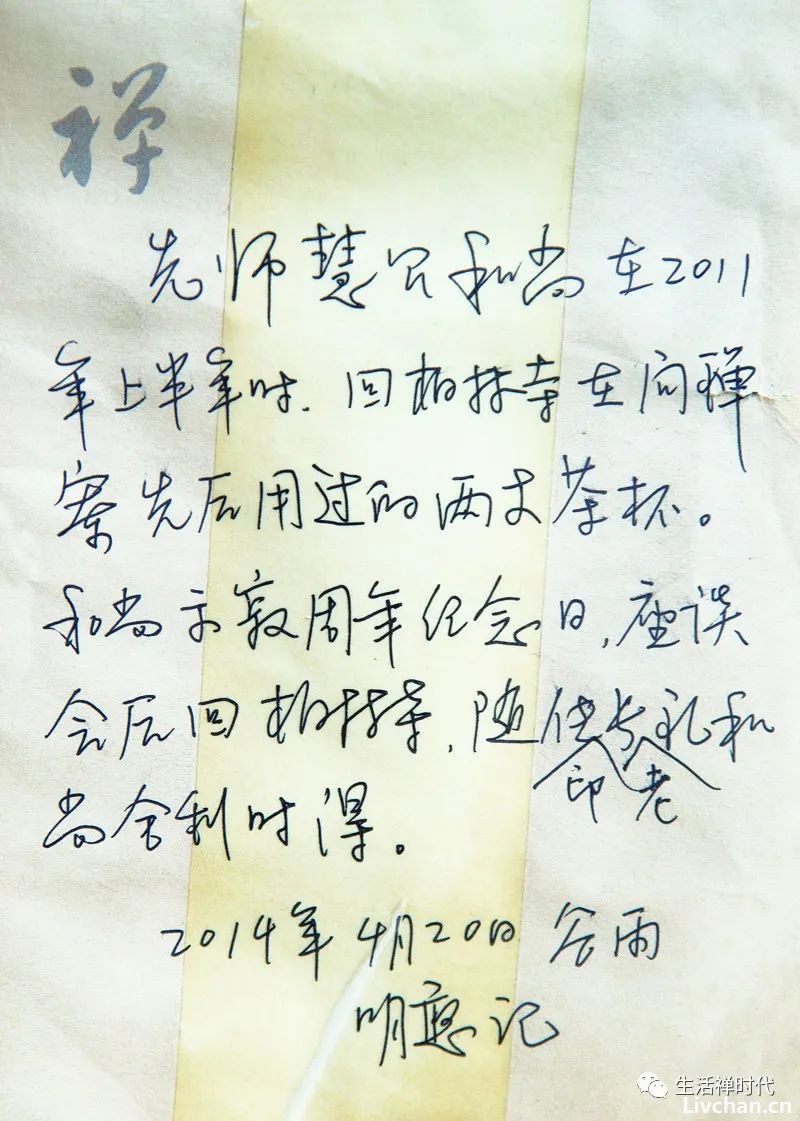 禅
先师慧公和尚在2011
年上半年时,回柏林寺在问禅
寮先后用过的两只茶杯。
和尚示寂周年纪念日,座谈
会后回柏林寺,随传印长老礼和
尚舍利时得。
2014年4月20日 谷雨
明憨记
生活禅时代
Livchan.cn